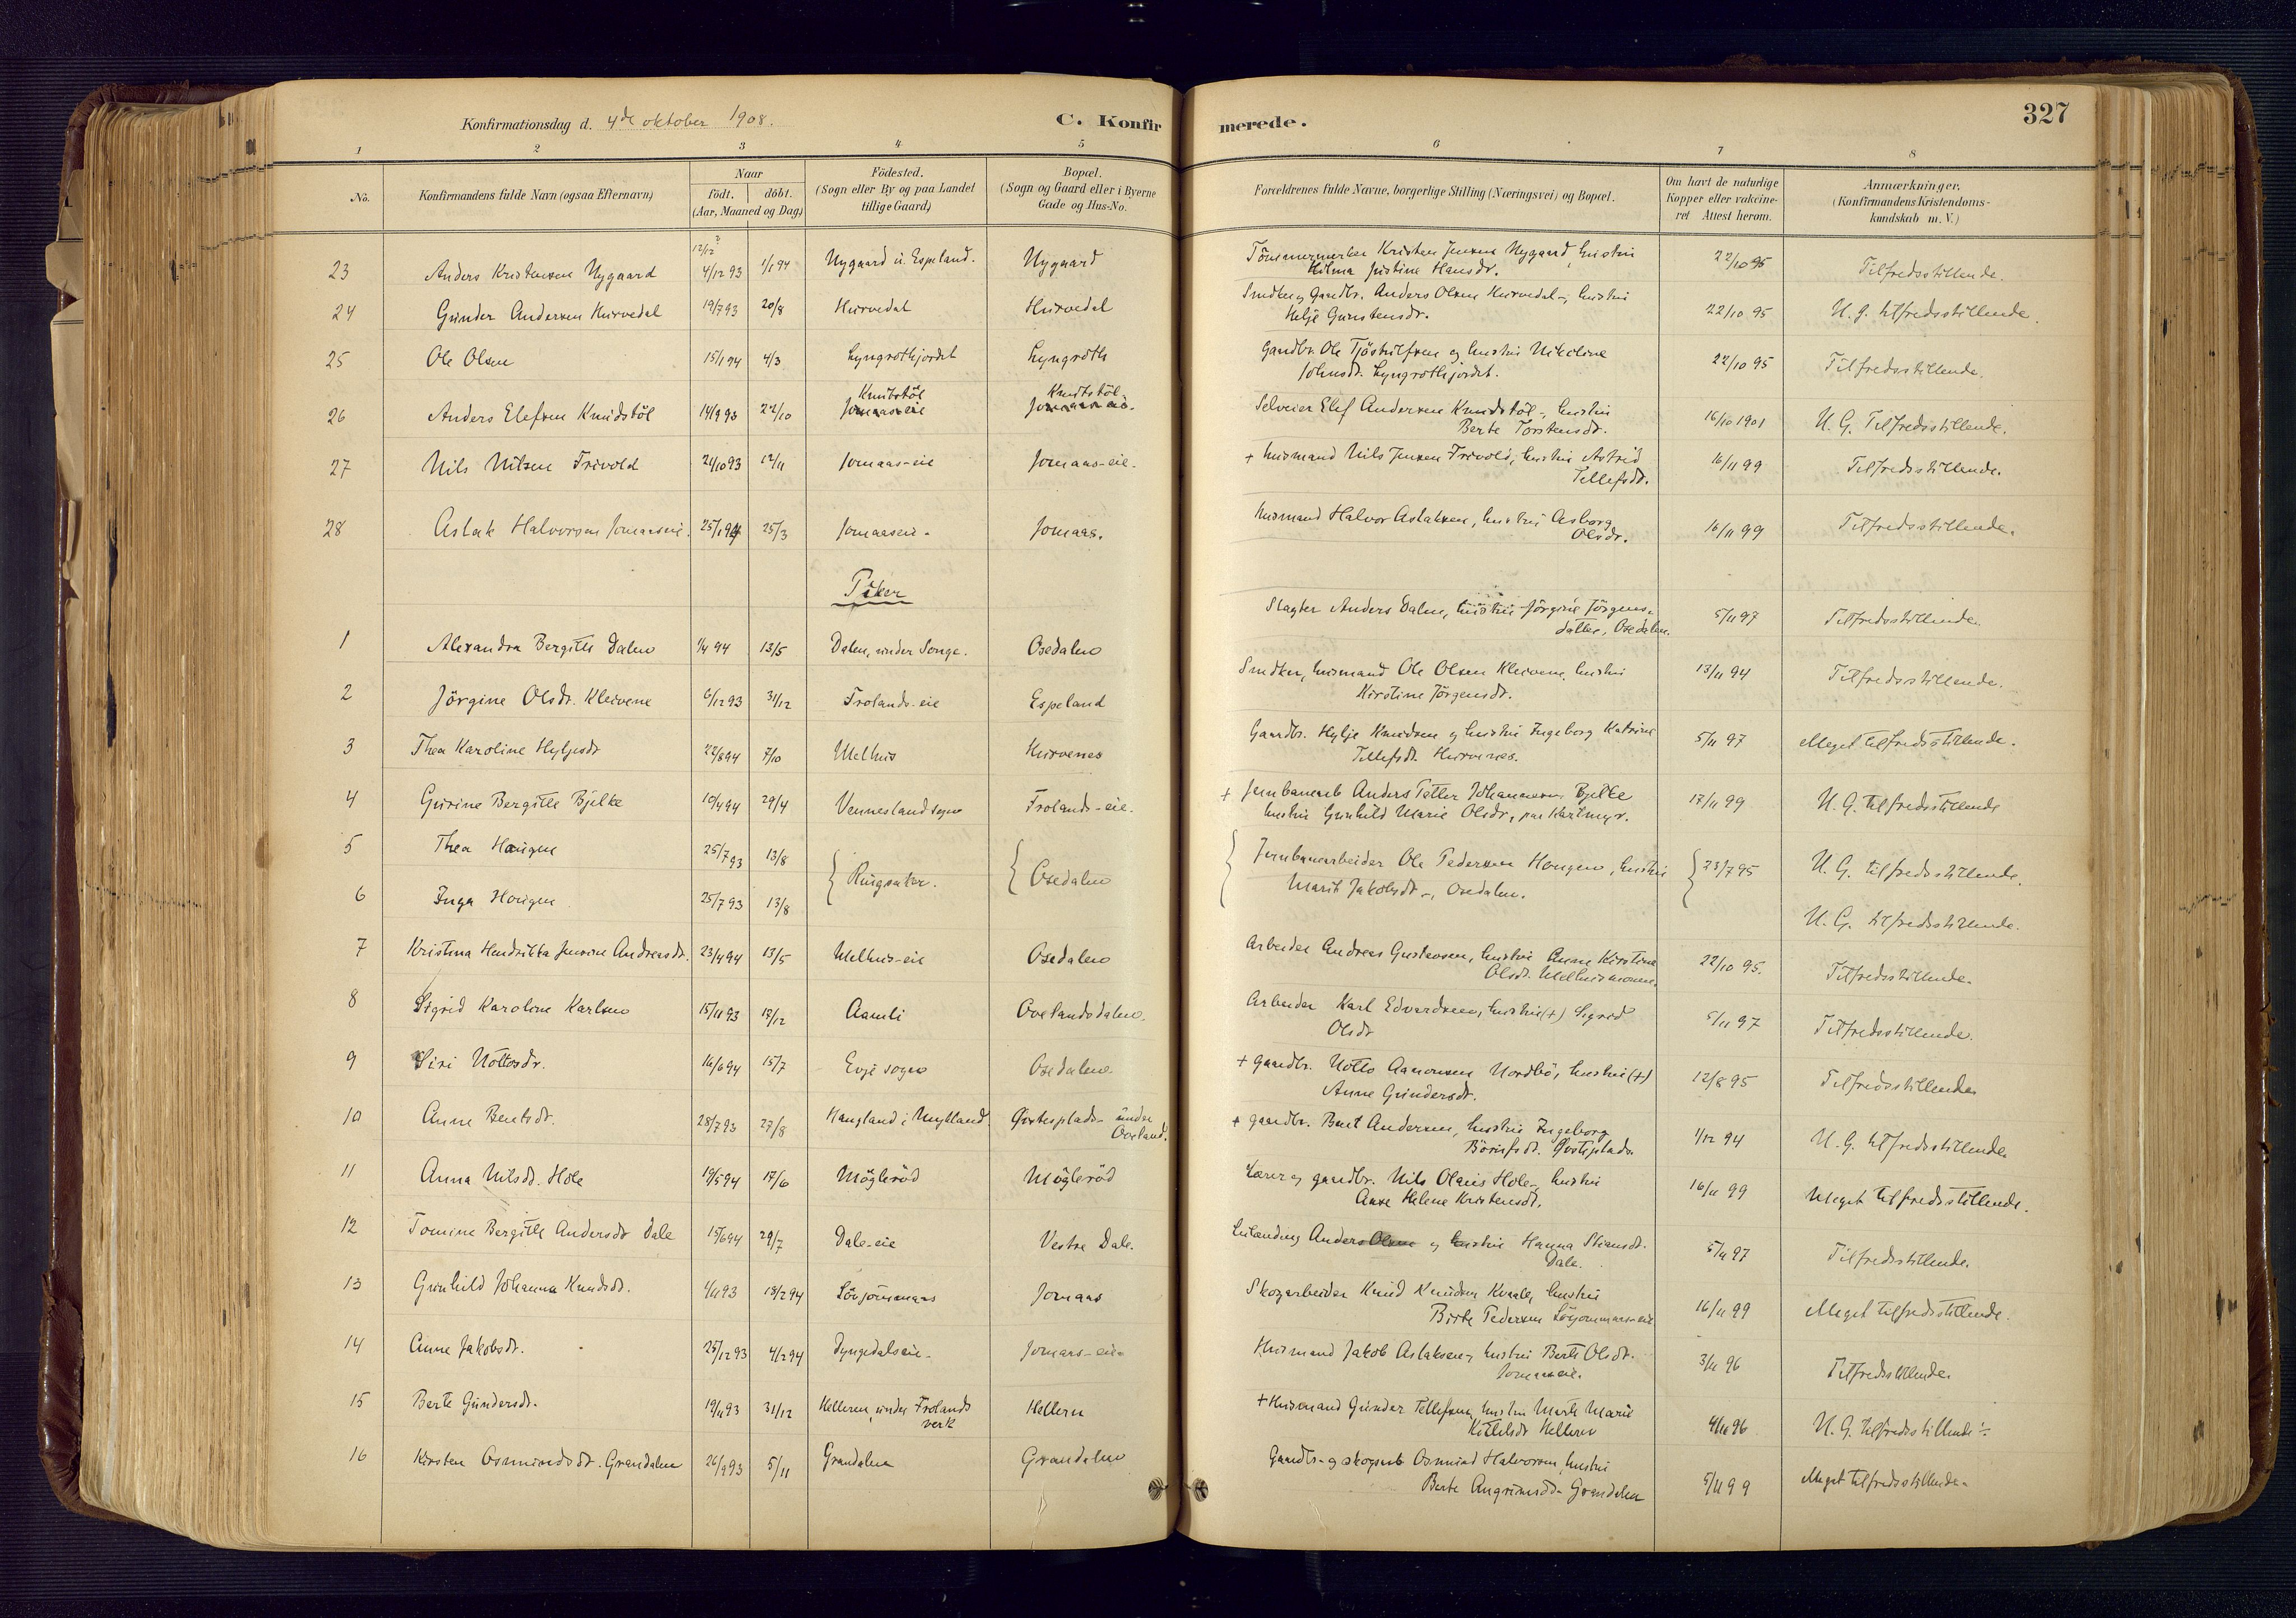 Konfirmationsdag d. 4de oktober 1908.
C. Konfirmerede.
327
1 2 3 4 5 6 7 8
No.
Konfirmandens fulde Navn (ogsaa Efternavn)
Naar
födt. döbt.
(Aar, Maaned og Dag)
Födested.
(Sogn eller By og paa Landet
tillige Gaard)
Bopæl.
(Sogn og Gaard eller i Byerne
Gade og Hus-No.
Forældrenes fulde Navne, borgerlige Stilling (Næringsvei) og Bopæl.
Om havt de naturlige
Kopper eller vakcine-
ret Attest herom.
Anmærkninger.
(Konfirmandens Kristendoms-
kundskab m. V.)
12/12 ?
23 Anders Kristensen Nygaard 4/12 93 1/1 94 Nygaard u. Espeland. Nygaard Tömmermerker Kristen Jensen Nygaard, hustru
Hilma Justine Hansdr. 22/10 95 Tilfredsstillende.
24 Gunder Andersen Hurvedal 19/7 93 20/8 Hurvedal Hurvedal Snedker og Gaardbr. Anders Olsen Hurvedal, hustru
Helje Gunstensdr. 22/10 95 U. g. tilfredsstillende.
25 Ole Olsen 15/1 94 4/3 Lyngrothjordet Lyngroth Gaardbr. Ole Tjöstulfsen og hustru Nikoline
Johnsdr. Lyngrothjordet. 22/10 95 Tilfredsstillende.
Knutstöl Knutstöl
26 Anders Elefsen Knudstöl 14/9 93 22/10 Jomaas-eie Jomaas-eie. Selveier Elef Andersen Knudstöl, hustru
Berte Torstensdr. 16/10 1901 U. G. Tilfredsstillende.
27 Nils Nilsen Trevold 21/10 93 12/11 Jomaas-eie Jomaas-eie. + husmand Nils Jensen Trevold, hustru Astrid
Tellefsdr. 16/11 99 Tilfredsstillende.
28 Aslak Halvorsen Jomaaseie. 25/1 94 25/3 Jomaaseie. Jomaas. Husmand Halvor Aslaksen, hustru Asborg
Olsdr. 16/11 99 Tilfredsstillende.
Piker
1 Alexandra Bergitte Dalen 1/4 94 13/5 Dalen, under Songe. Osedalen Slagter Anders Dalen, hustru Jörgine Jörgens-
datter, Osedalen. 5/11 97 Tilfredsstillende.
2 Jörgine Olsdr. Kleivene 6/12 93 31/12 Frolands-eie Espeland Snedker, husmand Ole Olsen Kleivene, hustru
Kirstine Jörgensdr. 13/11 94 Tilfredsstillende.
3 Thea Karoline Hyljesdr 22/8 94 7/10 Melhus Hurvenes Gaardbr. Hylje Knudsen og hustru Ingeborg Katrine
Tellefsdr. Hurvenes. 5/11 97 Meget tilfredsstillende.
4 Gurine Bergitte Bjelke 10/4 94 29/4 Venneslandsogn Frolands-eie. + Jernbanearb Anders Petter Johannesen Bjelke
hustru Gunhild Marie Olsdr, paa 17/11 99 U. G. tilfredsstillende
5 Thea Haugen 25/7 93 13/8 Ringsaker. Osedalen Jernbanearbeider Ole Pedersen Haugen, hustru
Marit Jakobsdr, Osedalen. 23/7 95 U. G. tilfredsstillende.
6 Inga Haugen 25/7 93 13/8 U. G. tilfredsstillende.
7 Kristina Hendrikka Jensine Andreasdr. 23/4 94 13/5 Melhus-eie Osedalen Arbeider Andreas Gustavsen, hustru Anne Kirstine
Olsdr. Melhusmoen. 22/10 95. Tilfredsstillende.
8 Sigrid Karoline Karlsen 15/11 93 17/12 Aamli Ovelandsdalen. Arbeider Karl Edvardsen, hustru (+) Sigrid
Olsdr 5/11 97 Tilfredsstillende.
9 Siri Nottosdr. 16/6 94 15/7 Evje sogn Osedalen + gaardbr. Notto Aanonsen Nordbö, hustru (+)
Anne Gundersdr. 12/8 95 Tilfredsstillende
10 Anne Bentsdr. 28/7 93 27/8 Haugland i Mykland. Qvstesplads under
Oveland. + gaardbr. Bent Andersen, hustru Ingeborg
1/12 94 U. G. tilfredsstillende
11 Anna Nilsdr. Hole 19/5 94 17/6 Mögleröd Mögleröd Lærer og gaardbr. Nils Olaus Hole, hustru
Anne Helene Kristensdr. 16/11 99 Meget tilfredsstillende.
12 Tomine Bergitte Andersdr Dale 15/6 94 29/7 Dale-eie Vestre Dale. Leilending Anders Olsen og hustru Hanna Stiansdr.
Dale. 5/11 97 Tilfredsstillende.
13 Gunhild Johanna Knudsdr. 4/11 93 18/2 94 Sörjommaas Jomaas Skogarbeider Knud Knudsen Kvaale, hustru
Birte Pedersen Sörjommaas-eie 16/11 99 Meget tilfredsstillende.
14 Anne Jakobsdr. 25/12 93 4/2 94 Dyngedalseie. Jomaas-eie. Husmand Jakob Aslaksen, hustru Berte Olsdr.
Jomaaseie. 3/11 96 Tilfredsstillende.
15 Berte Gundersdr. 19/11 93 31/12 Helleren, under Frolands
verk Hellern + Husmand Gunder Tellefsen, hustru Marte Marie
Kittelsdr Helleren 4/11 96 U. G. tilfredsstillende
16 Kirsten Osmundsdr. Grandalen 26/9 93 5/11 Grandalen Grandalen Gaardbr. og skogarb Osmund Halvorsen, hustru
Berte Angrimsdr. Grandalen 5/11 99 Meget tilfredsstillende.